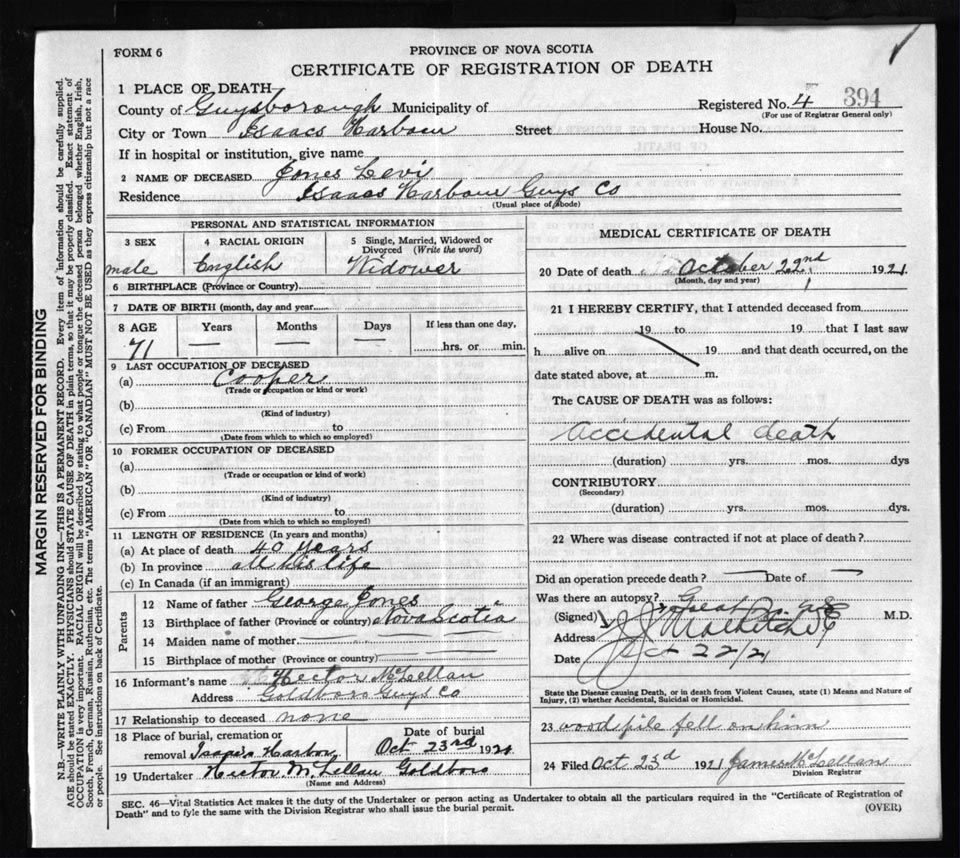 FORM 6
PROVINCE OF NOVA SCOTIA
CERTIFICATE OF REGISTRATION OF DEATH
1 PLACE OF DEATH
County of Guysborough Municipality of
Registered No. 4 394
(For use of Registrar General only)
City or Town Isaacs Harbour Street House No.
If in hospital or institution, give name
2 NAME OF DECEASED Jones Levi
Residence Isaacs Harbour Guys Co
(Usual place of abode)
PERSONAL AND STATISTICAL INFORMATION
3 SEX
male
4 RACIAL ORIGIN
English
5 Single, Married, Widowed or Divorced (Write the word)
Widower
6 BIRTHPLACE (Province or County)
7 DATE OF BIRTH (month, day and year)
8 AGE Years Months Days If less than one day,
71 — — — hrs. or min.
9 LAST OCCUPATION OF DECEASED
(a) Cooper
(Trade or occupation or kind of work)
(b)
(Kind of industry)
(c) From to
(Date from which to which so employed)
10 FORMER OCCUPATION OF DECEASED
(a)
(Trade or occupation or kind of work)
(b)
(Kind of industry)
(c) From to
(Date from which to which so employed)
11 LENGTH OF RESIDENCE (In years and months)
(a) At place of death 40 years
(b) In province all his life
(c) In Canada (if an immigrant)
Parents
12 Name of father George Jones
13 Birthplace of father (Province or county) Nova Scotia
14 Maiden name of mother
15 Birthplace of mother (Province or county)
16 Informant's name Hector McLellan
Address Goldboro Guys Co
17 Relationship to deceased none
18 Place of burial, cremation or Date of burial
removal Isaac's Harbor Oct 23rd 1921
19 Undertaker Hector McLellan Goldboro
(Name and Address)
MEDICAL CERTIFICATE OF DEATH
20 Date of death October 22nd 1921
(Month, day and year)
21 I HEREBY CERTIFY, that I attended deceased from
19 to 19 that I last saw
h alive on 19 and that death occurred, on the
date stated above, at m.
The CAUSE OF DEATH was as follows:
Accidental death
(duration) yrs. mos. dys
CONTRIBUTORY
(Secondary)
(duration) yrs. mos. dys.
22 Where was disease contracted if not at place of death?
Did an operation precede death? — Date of —
Was there an autopsy?
(Signed) M.D.
Address
Date Oct 22/21
State the Disease causing Death, or in death from Violent Causes, state (1) Means and Nature of
Injury, (2) whether Accidental, Suicidal or Homicidal.
23 wood pile fell on him
24 Filed Oct 23d 1921 James McLellan
Division Registrar
SEC. 46—Vital Statistics Act makes it the duty of the Undertaker or person acting as Undertaker to obtain all the particulars required in the "Certificate of Registration of
Death" and to fyle the same with the Division Registrar who shall issue the burial permit.
(OVER)
MARGIN RESERVED FOR BINDING
N.B.—WRITE PLAINLY WITH UNFADING INK—THIS IS A PERMANENT RECORD. Every item of information should be carefully supplied.
AGE should be stated EXACTLY. PHYSICIANS should STATE CAUSE OF DEATH in plain terms, so that it may be properly classified. Exact statement of
OCCUPATION is very important. RACIAL ORIGIN will be described by stating to what people or tongue the deceased person belonged whether English, Irish,
Scotch, French, German, Russian, Ruthenian, etc. The terms "AMERICAN" OR "CANADIAN" MUST NOT BE USED as they express citizenship but not a race
or people. See instructions on back of Certificate.